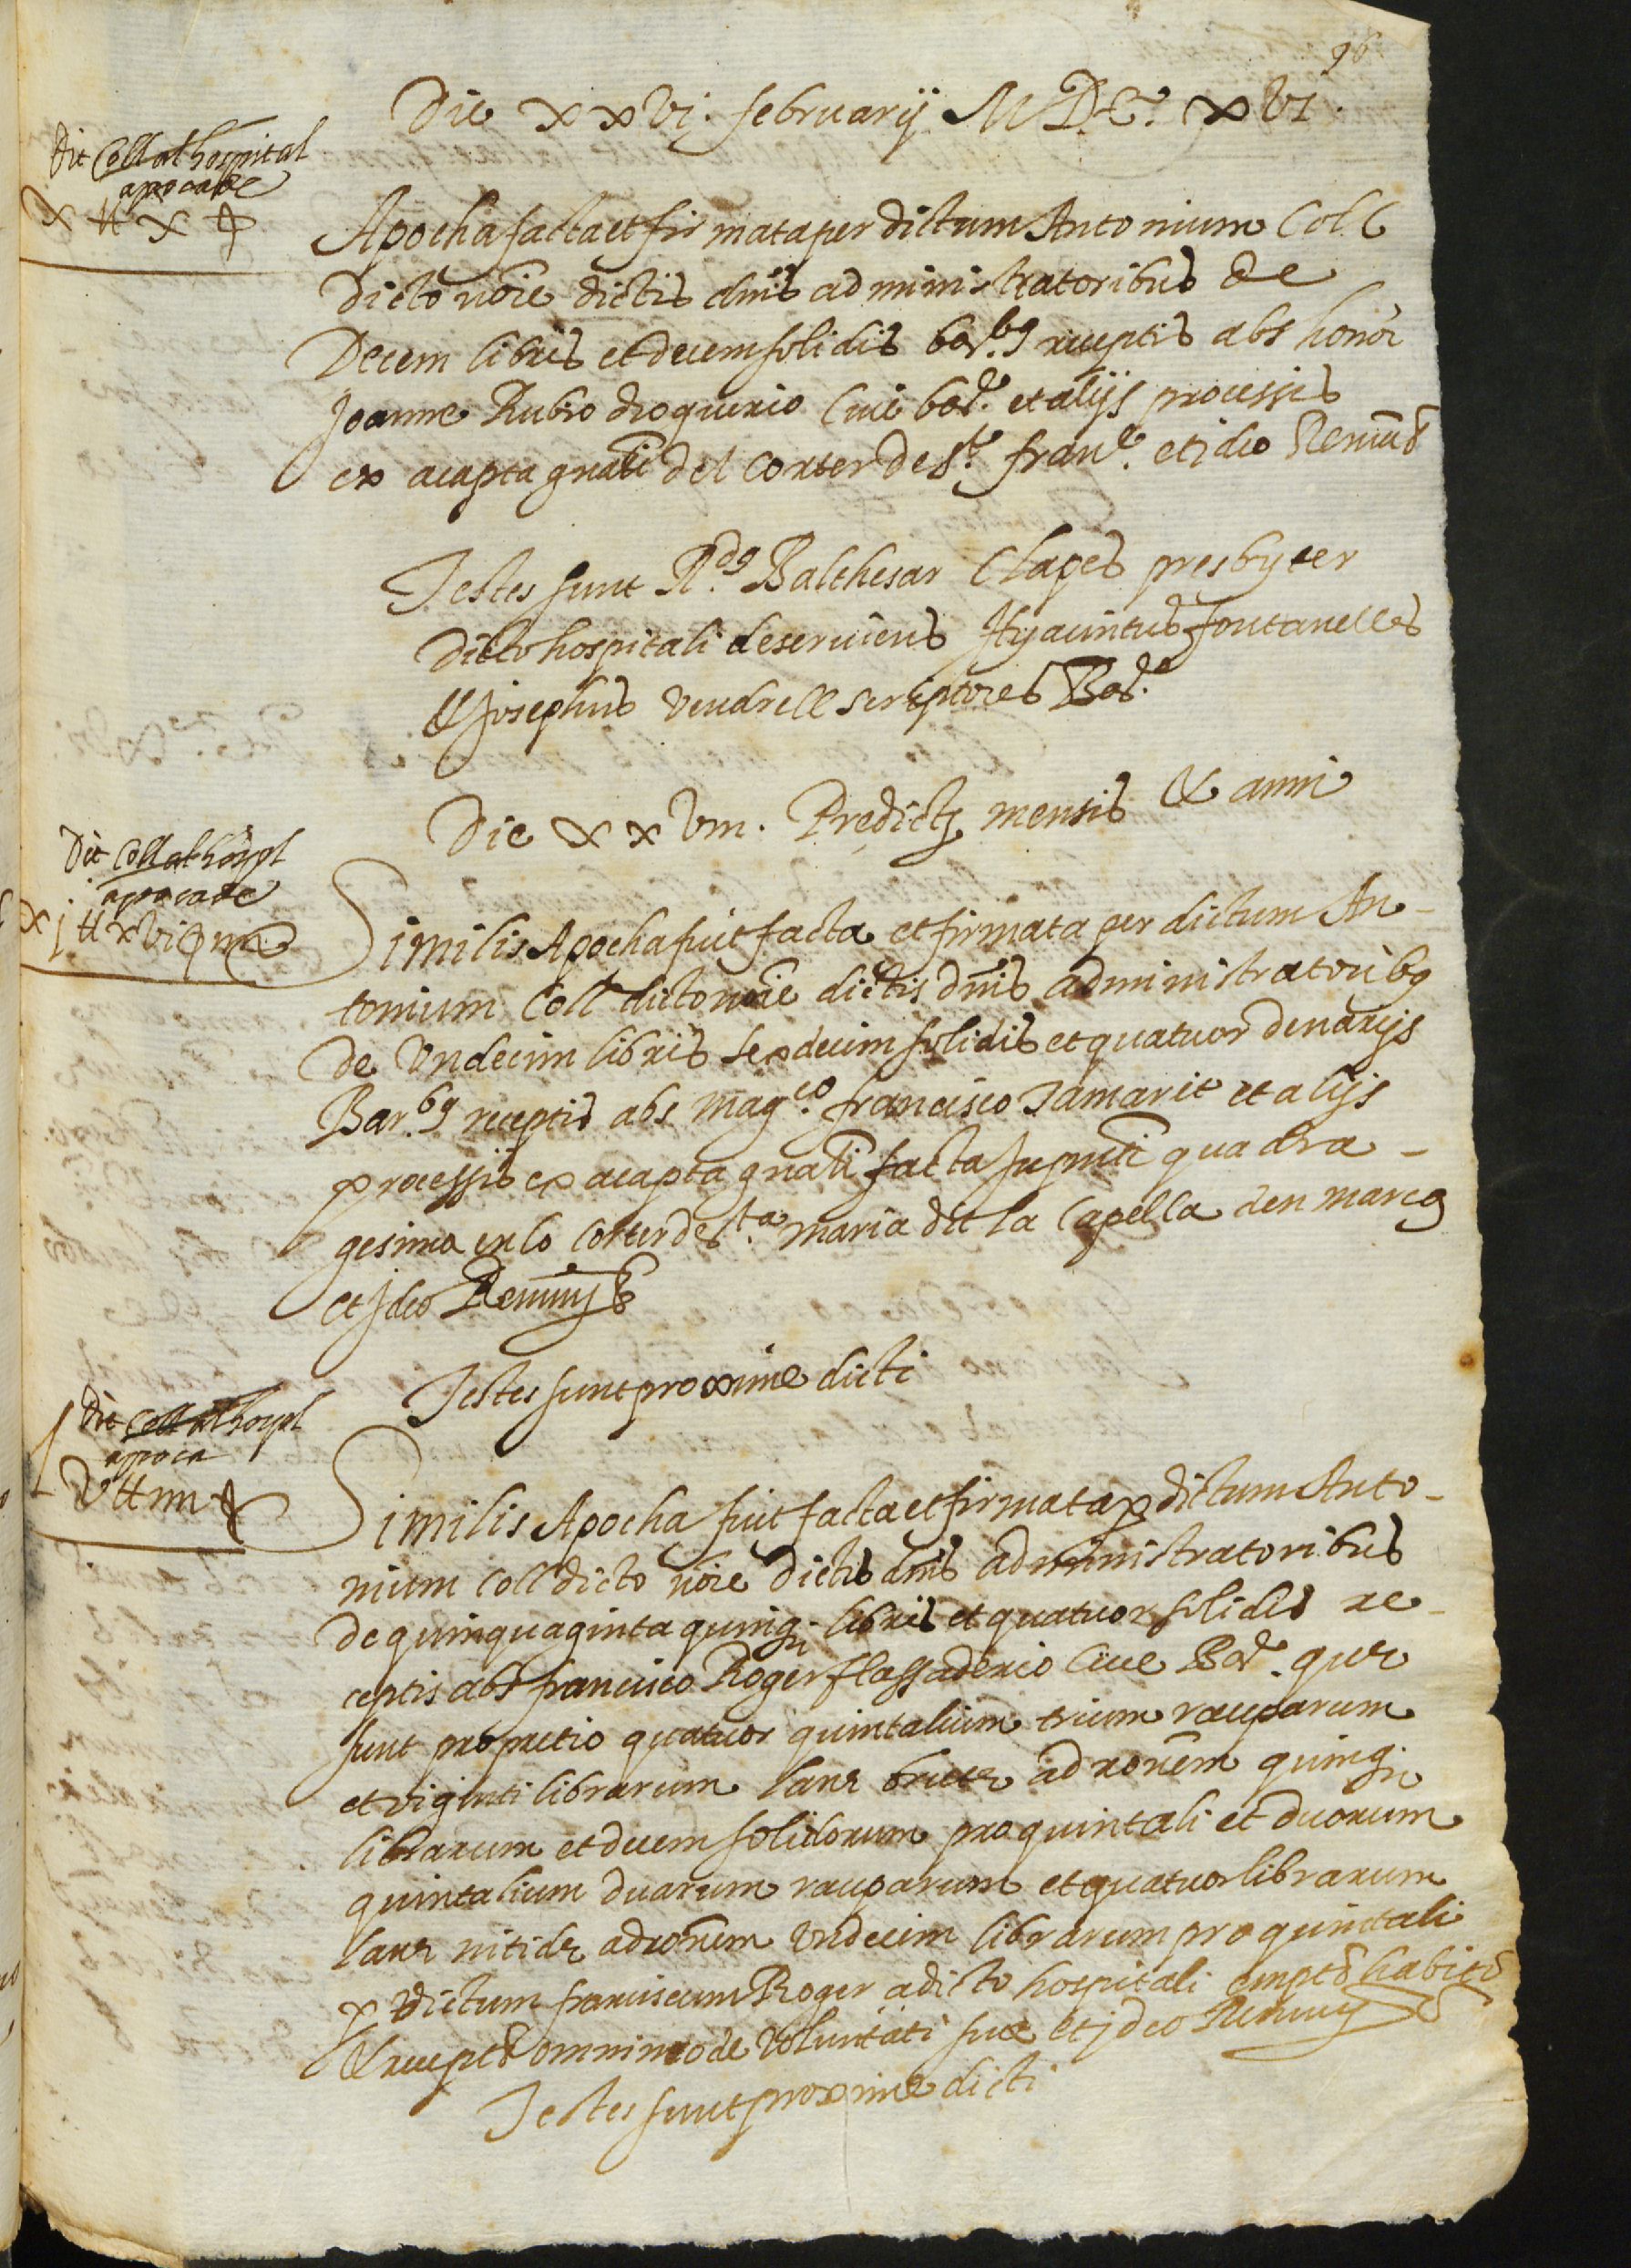 96
Die xxvj. februarij M.D.C. xvi.
Dit Coll al hospital
apoca de
x ℔ x ß
Apocha facta et firmata per dictum Antonium Coll
dicto noie dictis dnis administratoribus de
Decem libris et decem solidis bar.bq receptis abs honor
Joanne Rubio droguerio Cive bar.e et alijs processis
ex acapta gnali del Corter de St. franc. et ideo Renunt
Testes sunt R.dq Balthesar Clapes presbyter
dicto hospitali deserviens Hyacintus fontanelles
& Josephus Vendrell scriptores Bar.e
Die xxviii. Predictj mensis & anni
Dit Coll al hospl
apoca de
xj ℔ xvi ß iiii
Similis Apocha fuit facta et firmata per dictum An-
tonium Coll dicto noie dictis dnis administratoribq
de Undecim libris sexdecim solidis et quatuor denarijs
Bar.bq receptis abs mag.co francisco Tamarit et alijs
processis ex acapta gnali facta in pnti quadra-
gesima en lo Corter de S.ta maria dit la Capella den marcq
et jdeo Renunt
Testes sunt proxime dicti
Dit Coll al hospl
apoca
Lv ℔ iiii ß
Similis Apocha fuit facta et firmata p dictum Anto-
nium Coll dicto noie dictis dnis administratoribus
de quinquaginta quinq. libris et quatuor solidis re-
ceptis abs francisco Roger flassaderio Cive Bar.e que
sunt pro pretio quatuor quintalium trium rauparum
et viginti librarum lane brute ad ronem quinq.
librarum et decem solidorum pro quintali et duorum
quintalium duarum rauparum et quatuor librarum
lane nitide ad ronem Undecim librarum pro quintali
p dictum franciscum Roger a dicto hospitali empt habit
& recept omnimode voluntati sue et jdeo Renunt
Testes sunt proxime dicti